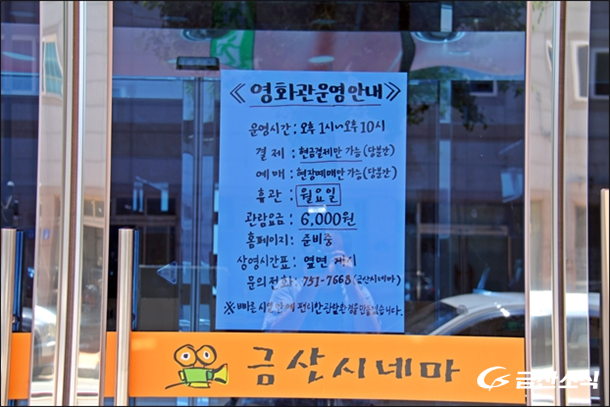 《영화관운영안내》
운영시간 : 오후 1시~오후 10시
결제 : 현금결제만 가능(당분간)
예매 : 현장예매만 가능(당분간)
휴관 : 월요일
관람요금 : 6,000원
홈페이지 : 준비중
상영시간표 : 옆면 게시
문의전화 : 751-7668 (금산시네마)
※ 빠른 시일 안에 편리한 관람환경을 만들겠습니다.
금산시네마
금산소식